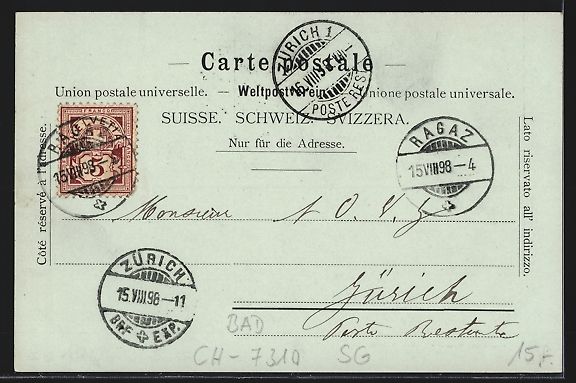 Carte postale
Union postale universelle. Weltpostverein. Unione postale universale.
SUISSE. SCHWEIZ. SVIZZERA.
Nur für die Adresse.
Côté réservé à l'adresse.
Lato riservato all' indirizzo.
ZÜRICH 1
POSTE REST
FRANCO
HELVETIA
5
RAGAZ
15 VIII 98
RAGAZ
15 VIII 98 - 4
Monsieur N O. V. Z
Zürich
Poste Restante
ZÜRICH
15. VIII 98 - 11
BRF EXP.
BAD
CH - 7310 SG
15 F.